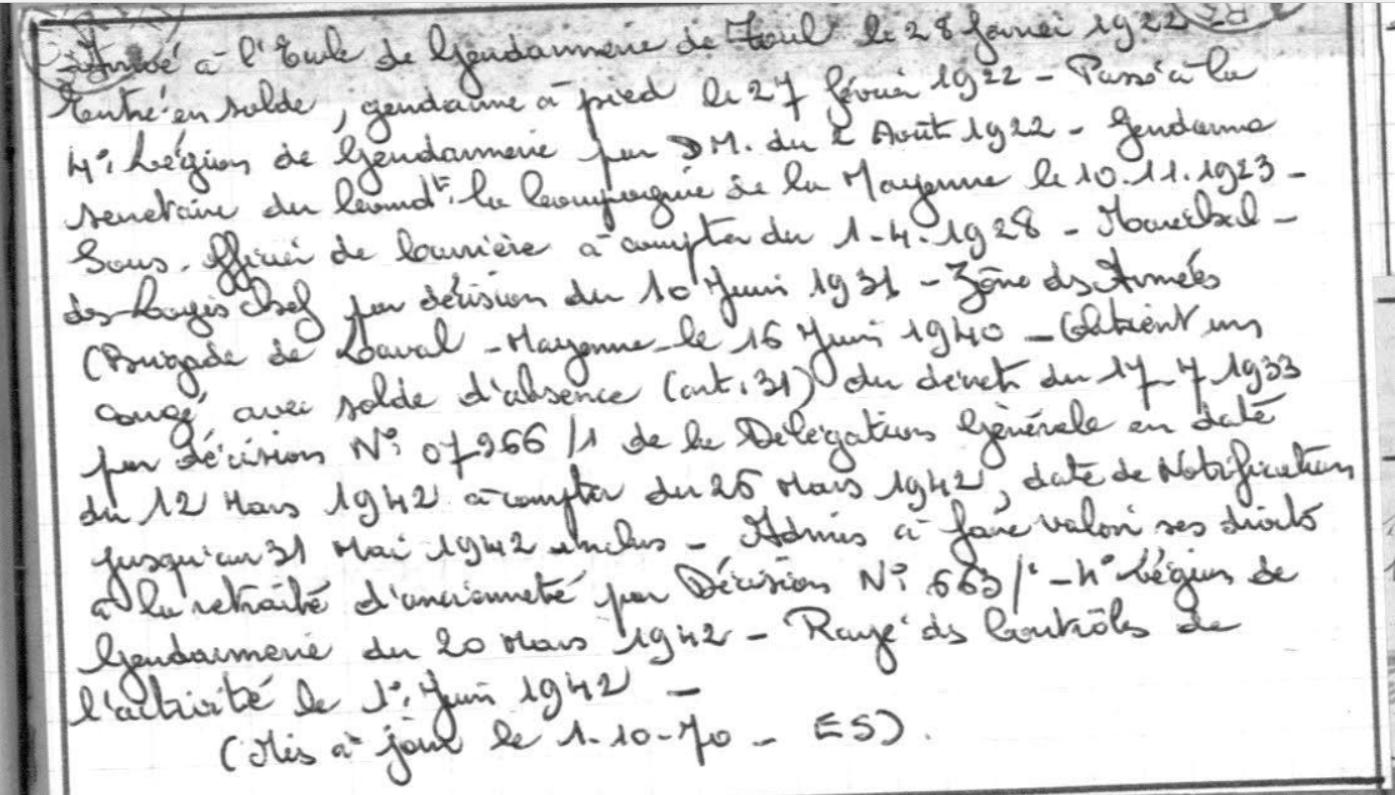 Arrivé à l'Ecole de Gendarmerie de Toul le 28 Janvier 1922 -
Rentré en solde, gendarme à pied le 27 février 1922 - Passé à la
4e. Légion de Gendarmerie par DM. du 2 Août 1922 - Gendarme
secrétaire du Comdt. la Compagnie de la Mayenne le 10.11.1923 -
Sous-officier de Carrière à compter du 1-4-1928 - Maréchal -
des-Logis Chef par décision du 10 Juin 1931 - Zône des Armées
(Brigade de Laval - Mayenne - le 16 Juin 1940 - Obtient un
congé avec solde d'absence (art. 31) du décret du 17-7-1933
par décision N° 07266/1 de la Délégation Générale en date
du 12 Mars 1942 à compter du 26 Mars 1942, date de Notification
jusqu'au 31 Mai 1942 inclus - Admis à faire valoir ses droits
à la retraite d'ancienneté par Décision N° 663/ - 4° Légion de
Gendarmerie du 20 Mars 1942 - Rayé des Contrôles de
l'activité le 1°. Juin 1942 -
(Mis à jour le 1-10-70 - ES).